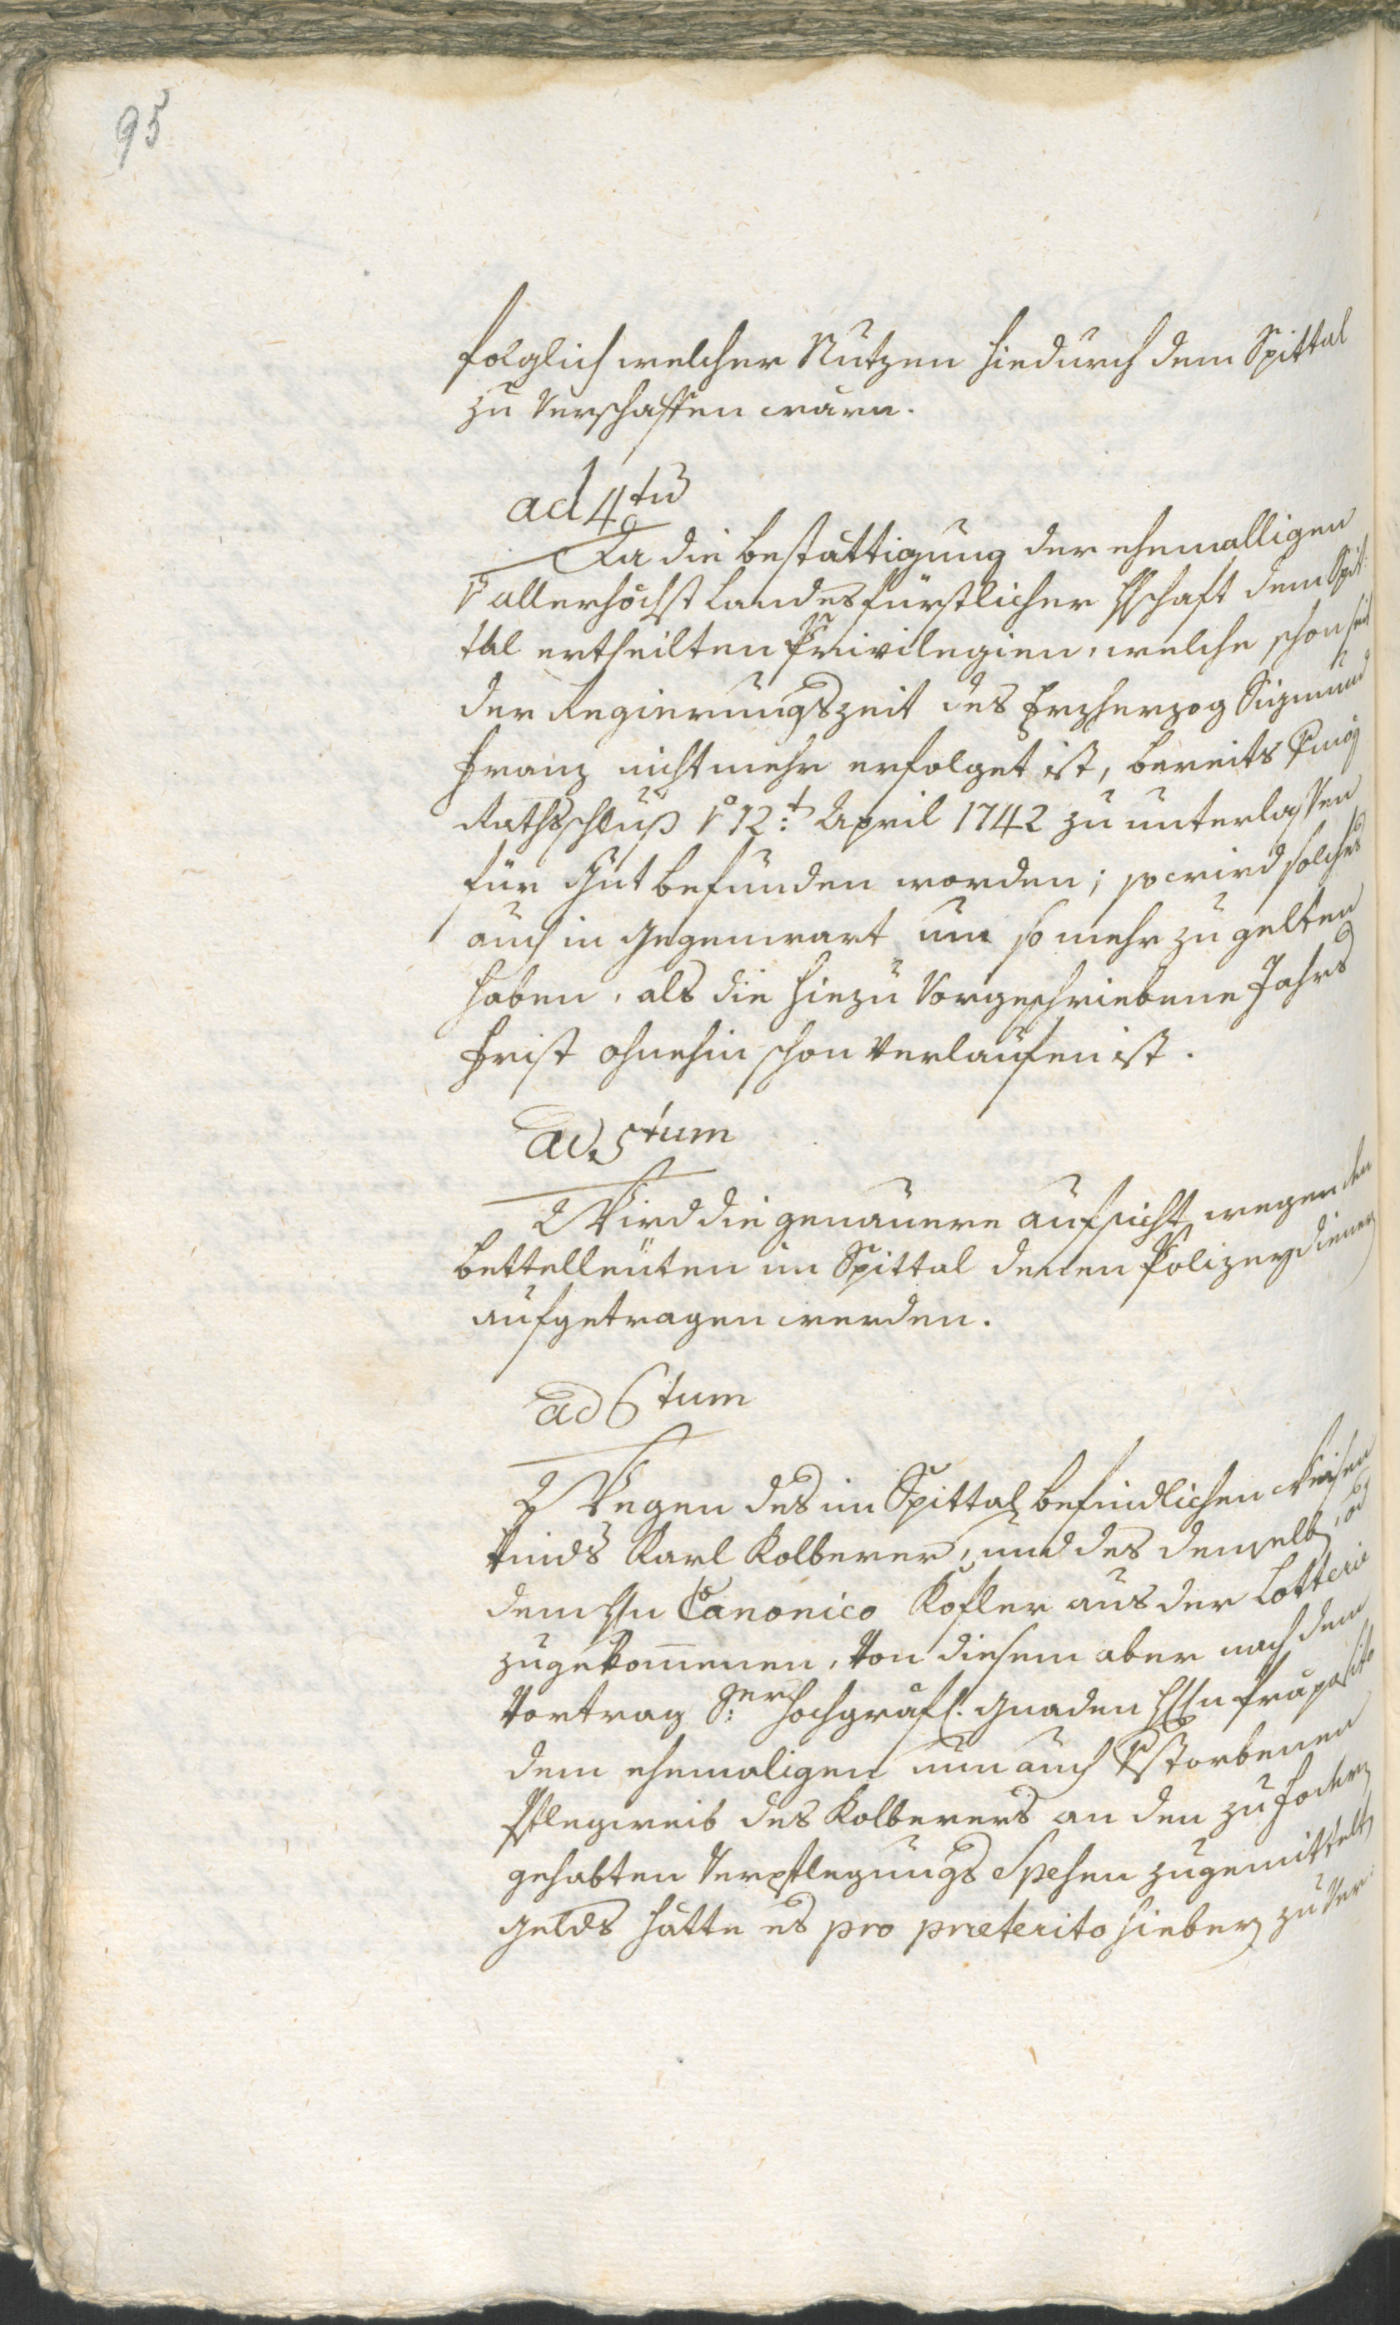 95
folglich welcher Nutzen hiedurch dem Spittal
zu verschaffen wäre.
ad 4tu
Da die bestättigung der ehemalligen
v allerhöchst Landesfürstlicher Hschaft dem Spit:
tal ertheilten Privilegien, welche schon seit
der Regierungszeit des Erzherzog Sigmund
Franz nicht mehr erfolget ist, bereits
Rathsschluß vo 12:t April 1742 zu unterlassen
für Gut befunden worden; so wird solches
auch in Gegenwart um so mehr zu gelten
haben, als die hiezu Vorgeschriebene Jahrs
Frist ohnehin schon verlaufen ist.
ad 5tum
Wird die genauere aufsicht wegen den
bettelleuten im Spittal denen Polizeydiener
aufgetragen werden.
ad 6tum
Wegen des im Spittal befindlichen Weisen
kinds Karl Kolberer, und des demselb, od
dem Hn Canonico Kofler aus der Lotterie
zugekommenen, von diesem aber nach dem
Vortrag Sr: Hochgräfl. Gnaden HHn Präposito
dem ehemaligen nun auch vstorbenen
Pflegweib des Kolberers an den zu fodern
gehabten Verpflegungs Spesen zugemittelt
Gelds hätte es pro præterito hiebey zu Ver: